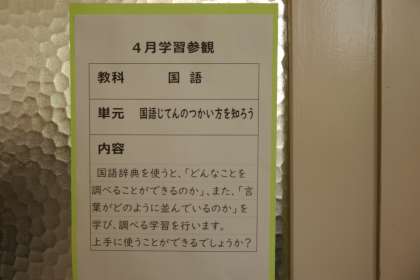 4月学習参観
教科 国語
単元 国語じてんのつかい方を知ろう
内容
国語辞典を使うと、「どんなことを
調べることができるのか」、また、「言
葉がどのように並んでいるのか」を
学び、調べる学習を行います。
上手に使うことができるでしょうか?